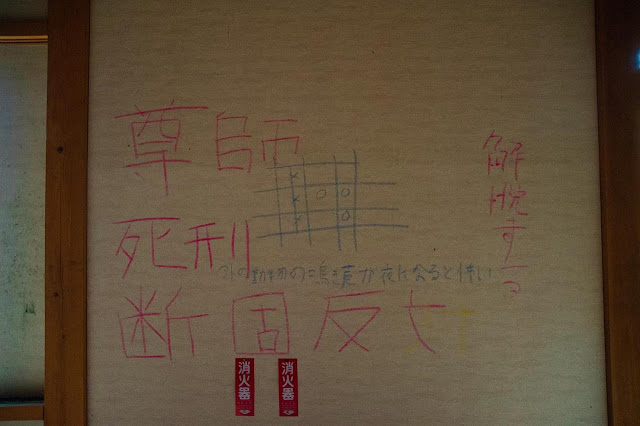 尊師
死刑
の動物の
夜になると怖い
断固反
解脱する
消火器
消火器